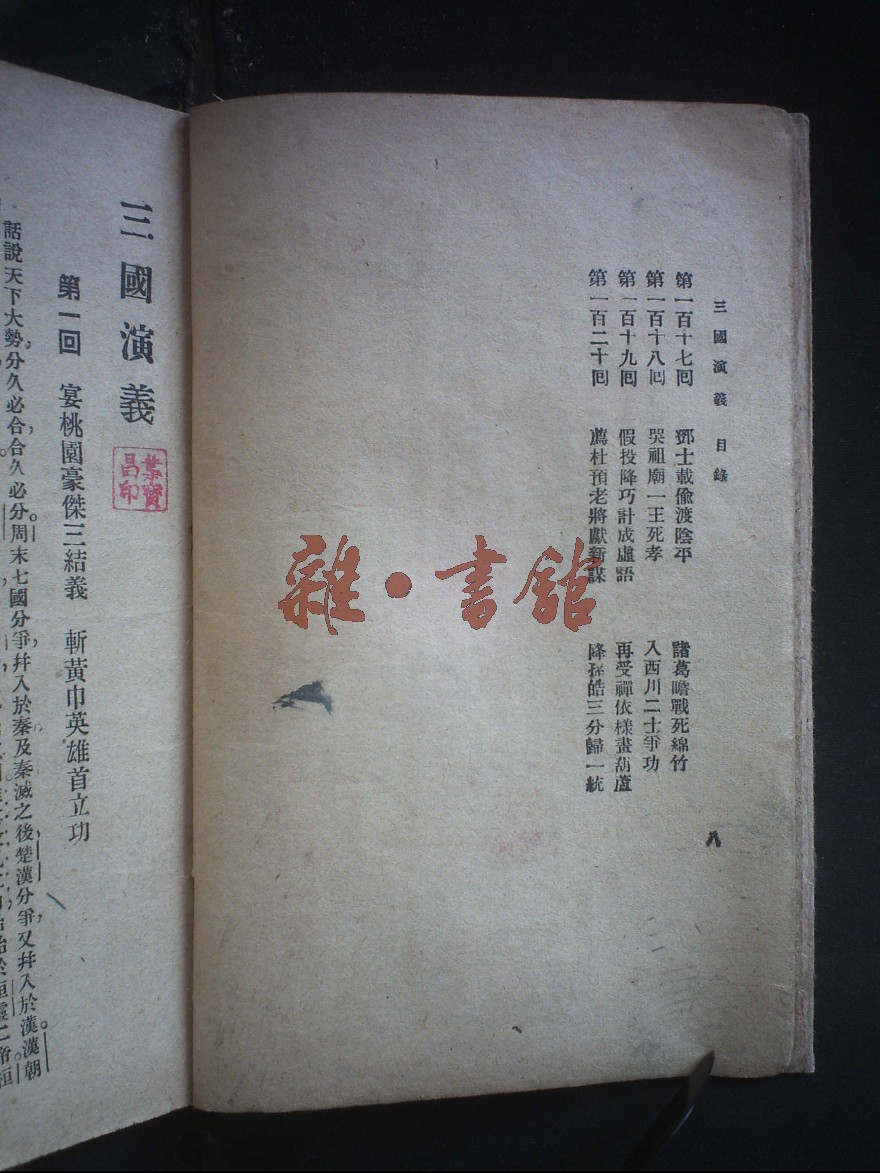 三國演義 目錄
八
第一百十七回 鄧士載偸渡陰平 諸葛瞻戰死綿竹
第一百十八回 哭祖廟一王死孝 入西川二士爭功
第一百十九回 假投降巧計成虛語 再受禪依樣畫葫蘆
第一百二十回 薦杜預老將獻新謀 降孫皓三分歸一統
雜·書舘
三國演義
葉寶昌印
第一回 宴桃園豪傑三結義 斬黃巾英雄首立功
話說天下大勢,分久必合,合久必分。周末七國分爭,幷入於秦;及秦滅之後,楚漢分爭,又幷入於漢。漢朝